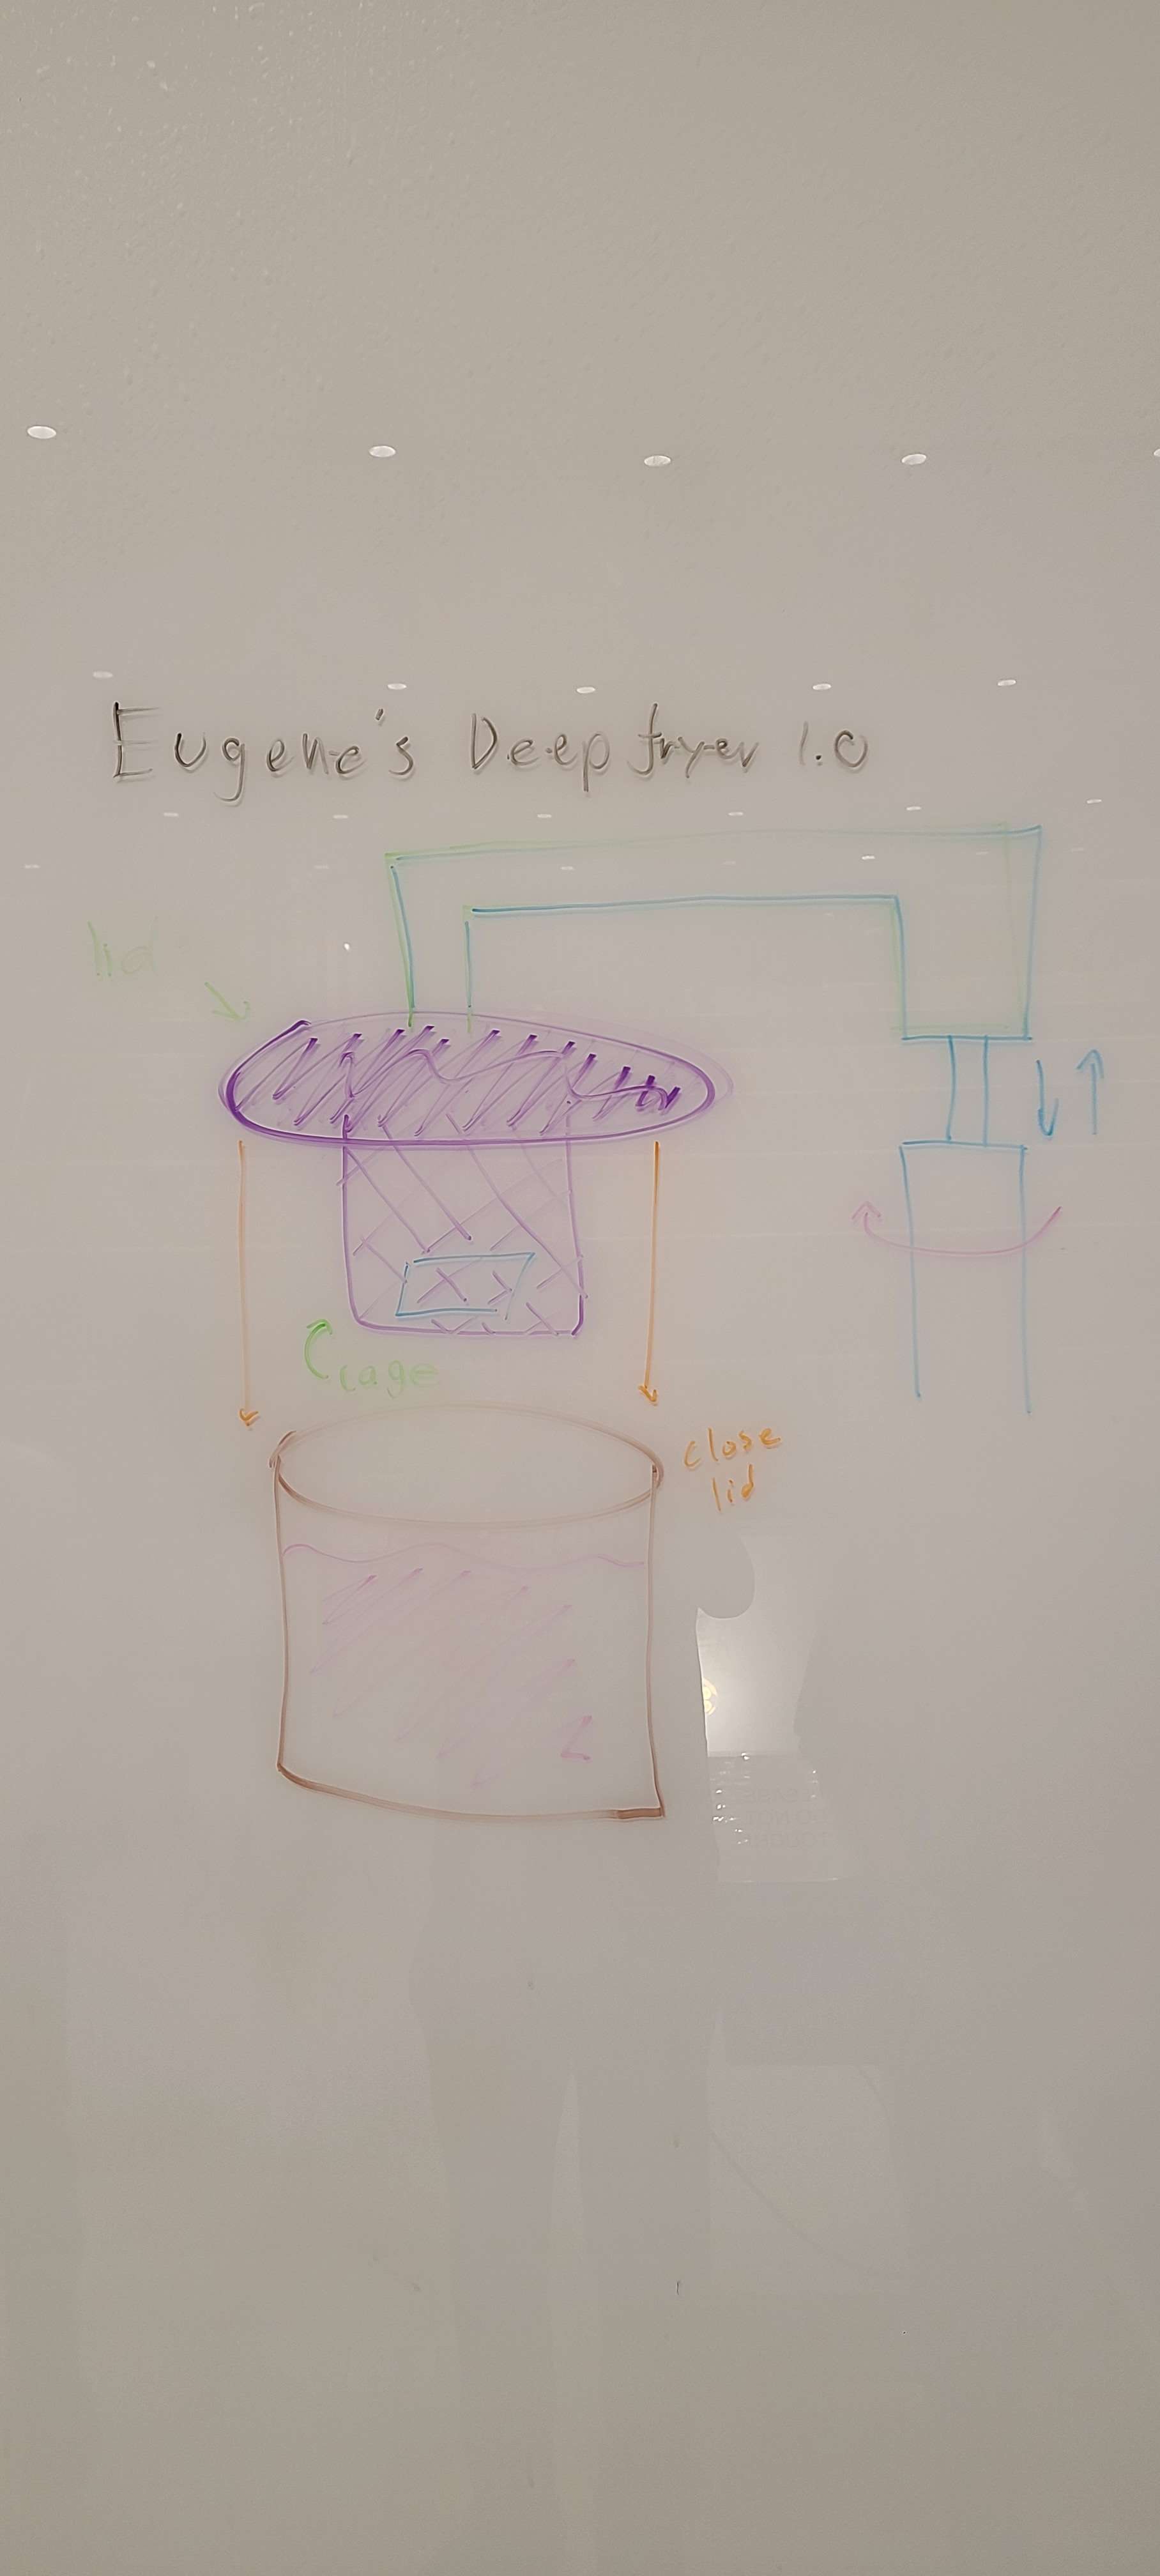 Eugene's Deep fryer 1.0
lid
cage
close
lid